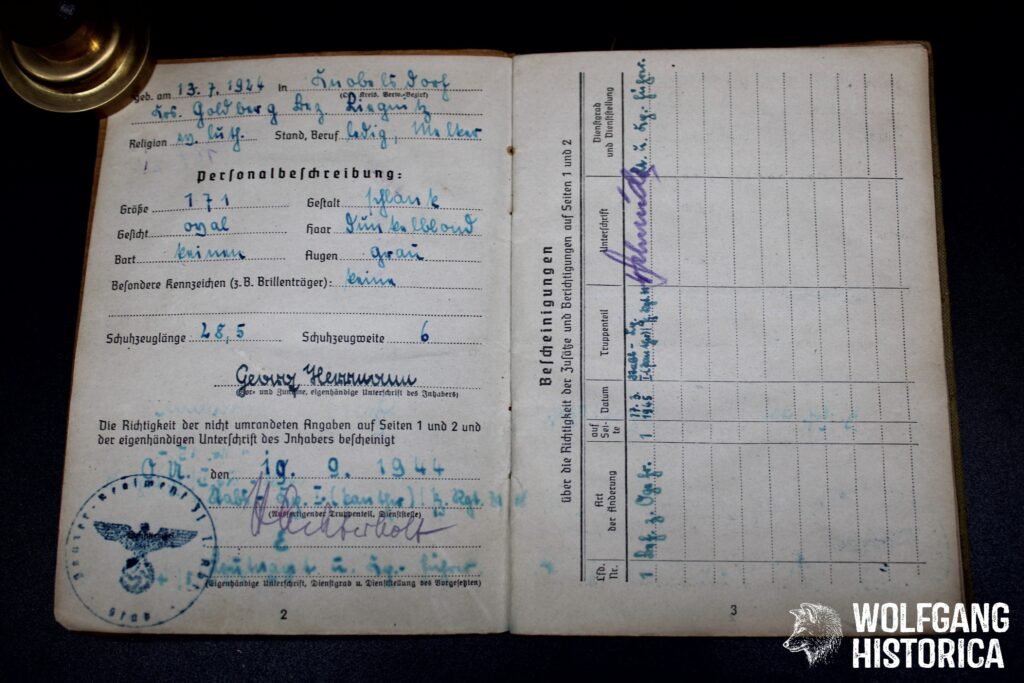 geb. am 13.7.1924 in Knobelsdorf
(Ort, Kreis, Verw.-Bezirk)
Krs. Goldberg Bez Liegnitz
Religion ev. luth. Stand, Beruf ledig, Melker
Personalbeschreibung:
Größe 171 Gestalt schlank
Gesicht oval Haar Dunkelblond
Bart keinen Augen grau
Besondere Kennzeichen (z.B. Brillenträger): keine
Schuhzeuglänge 28,5 Schuhzeugweite 6
Georg Herrmann
(Vor- und Zuname, eigenhändige Unterschrift des Inhabers)
Die Richtigkeit der nicht umrandeten Angaben auf Seiten 1 und 2 und
der eigenhändigen Unterschrift des Inhabers bescheinigt
O.U. den 19. 9. 1944
(Ausfertigender Truppenteil, Dienststelle)
(Eigenhändige Unterschrift, Dienstgrad u. Dienststellung des Vorgesetzten)
2
Bescheinigungen
über die Richtigkeit der Zusätze und Berichtigungen auf Seiten 1 und 2
Lfd. Nr.
Art der Änderung
auf Seite
Datum
Truppenteil
Unterschrift
Dienstgrad und Dienststellung
1
1
17.3.
1945
Schmidt
3
WOLFGANG
HISTORICA